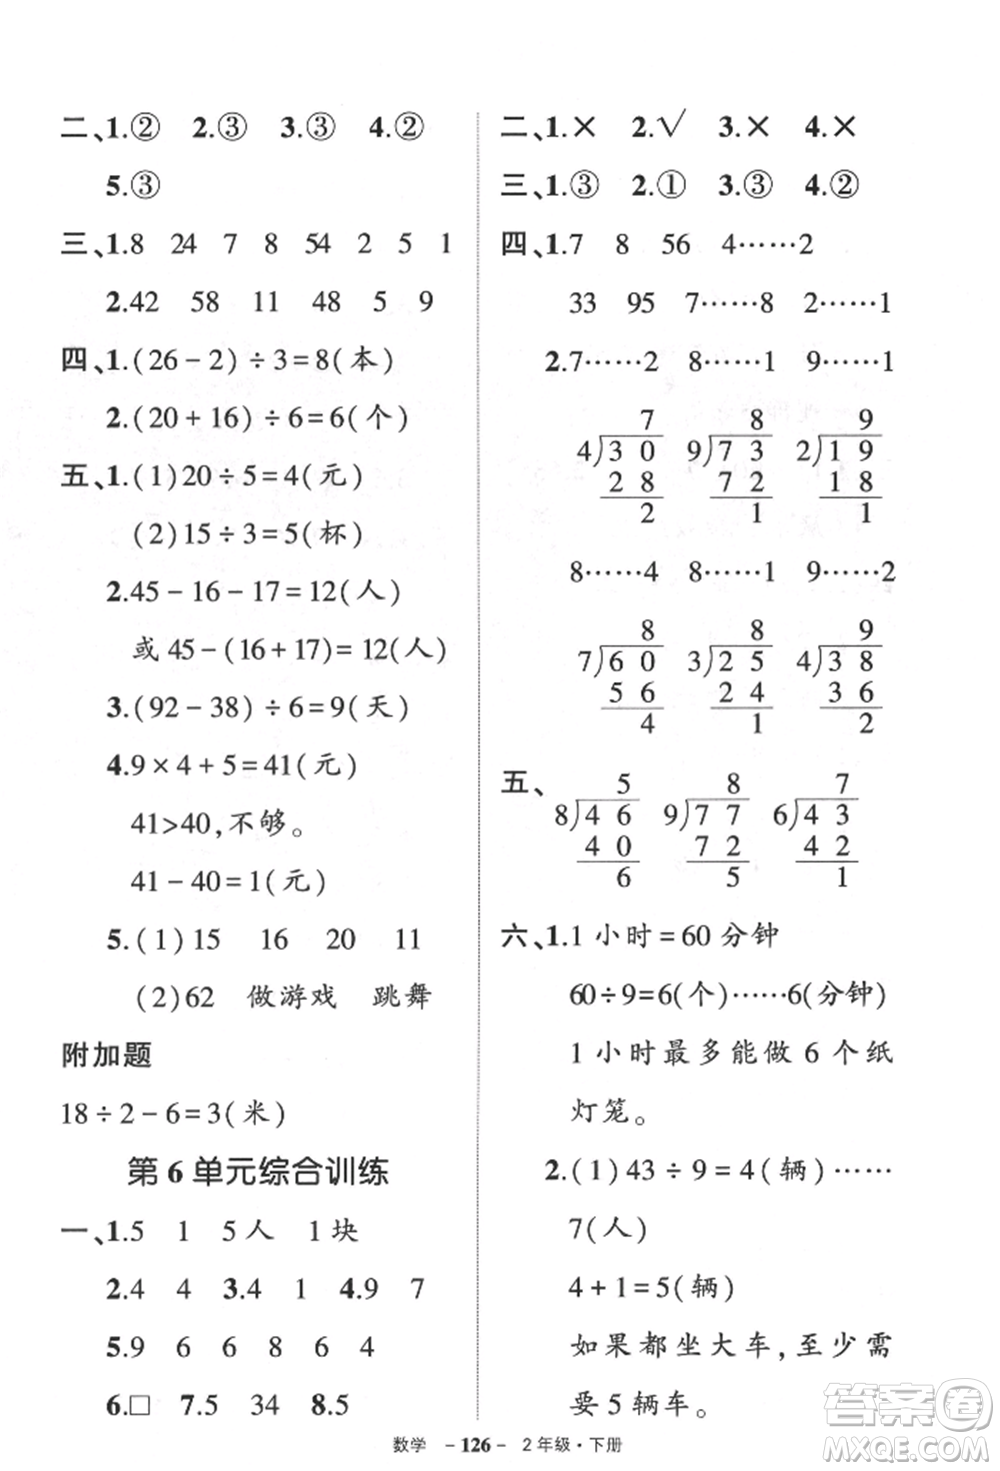 二、1.② 2.③ 3.③ 4.②
5.③
三、1.8 24 7 8 54 2 5 1
2.42 58 11 48 5 9
四、1.(26-2)÷3=8(本)
2.(20+16)÷6=6(个)
五、1.(1)20÷5=4(元)
(2)15÷3=5(杯)
2.45-16-17=12(人)
或 45-(16+17)=12(人)
3.(92-38)÷6=9(天)
4.9×4+5=41(元)
41>40,不够。
41-40=1(元)
5.(1)15 16 20 11
(2)62 做游戏 跳舞
附加题
18÷2-6=3(米)
第6单元综合训练
一、1.5 1 5人 1块
2.4 4 3.4 1 4.9 7
5.9 6 6 8 6 4
6.□ 7.5 34 8.5
二、1.× 2.√ 3.× 4.×
三、1.③ 2.① 3.③ 4.②
四、1.7 8 56 4……2
33 95 7……8 2……1
2.7……2 8……1 9……1
7 8 9
4)30 9)73 2)19
28 72 18
2 1 1
8……4 8……1 9……2
8 8 9
7)60 3)25 4)38
56 24 36
4 1 2
五、 5 8 7
8)46 9)77 6)43
40 72 42
6 5 1
六、1.1小时=60分钟
60÷9=6(个)……6(分钟)
1小时最多能做6个纸
灯笼。
2.(1)43÷9=4(辆)……
7(人)
4+1=5(辆)
如果都坐大车,至少需
要5辆车。
数学 -126- 2年级·下册
答案圈
MXQE.COM